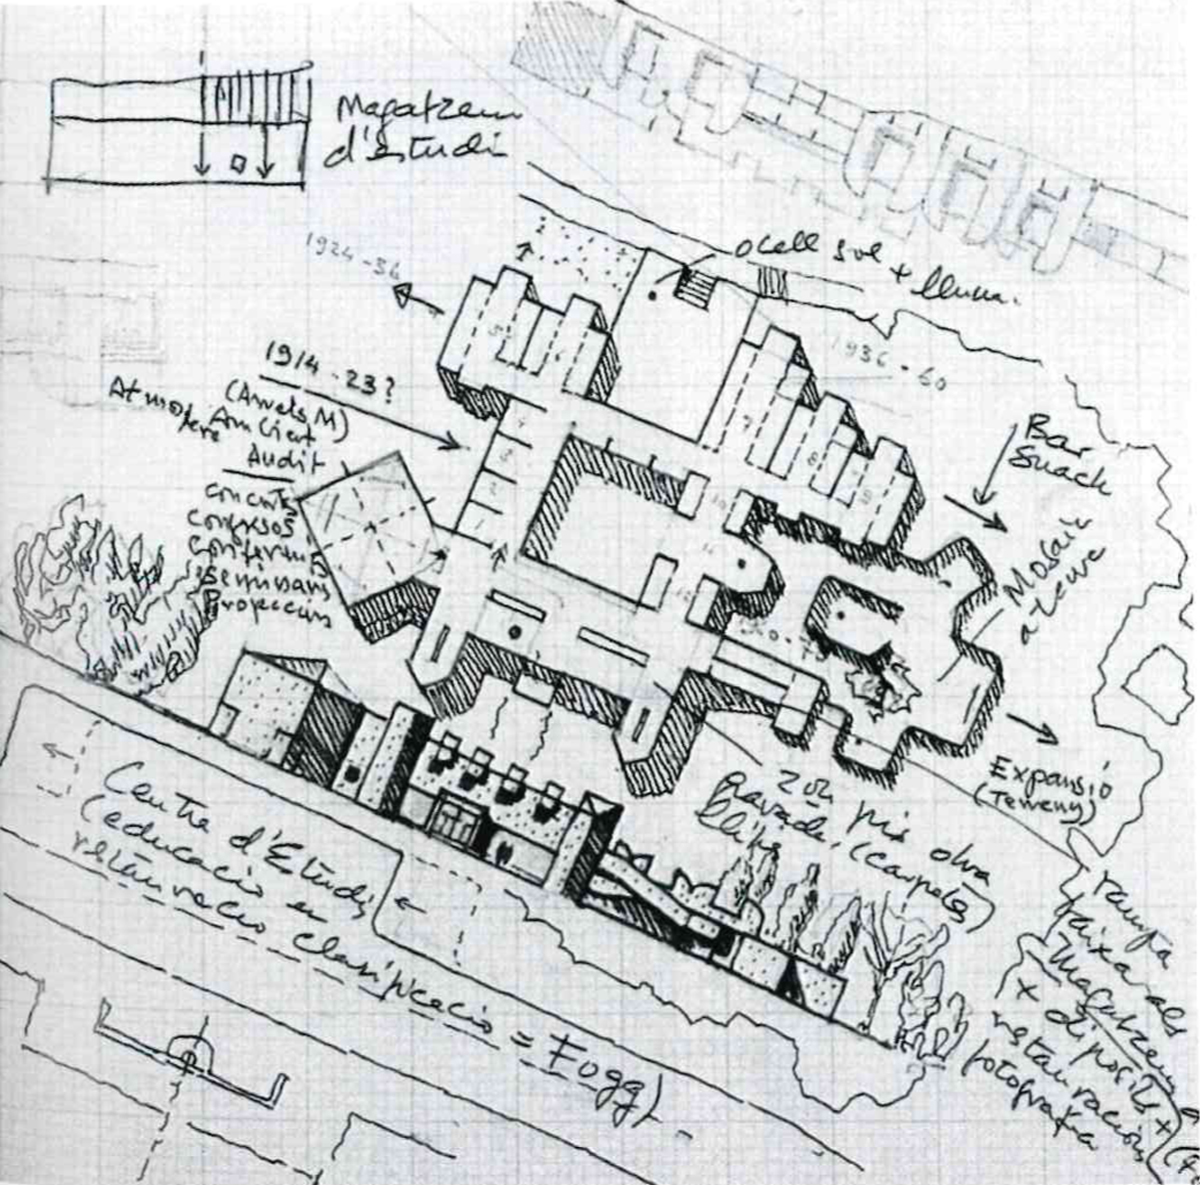 Magatzem
d'estudi
1924-36
ocell sol + lluna.
1936-60
1914-23?
(Amels M)
Atmosfere
Audit
concerts
congresos
conferencies
seminaris
Projeccions
Bar
Snack
Mosaic
a l'euve
Expansió
(Terreny)
2on pis obra
Gravada, (Carpetes)
Llibres
Centre d'Estudis
(educació en
restauració clasificació = Fogg)
rampa
baixa als
Magatzems
x diposits +
restauracions
fotografia
5
6
7
8
9
4
3
2
1